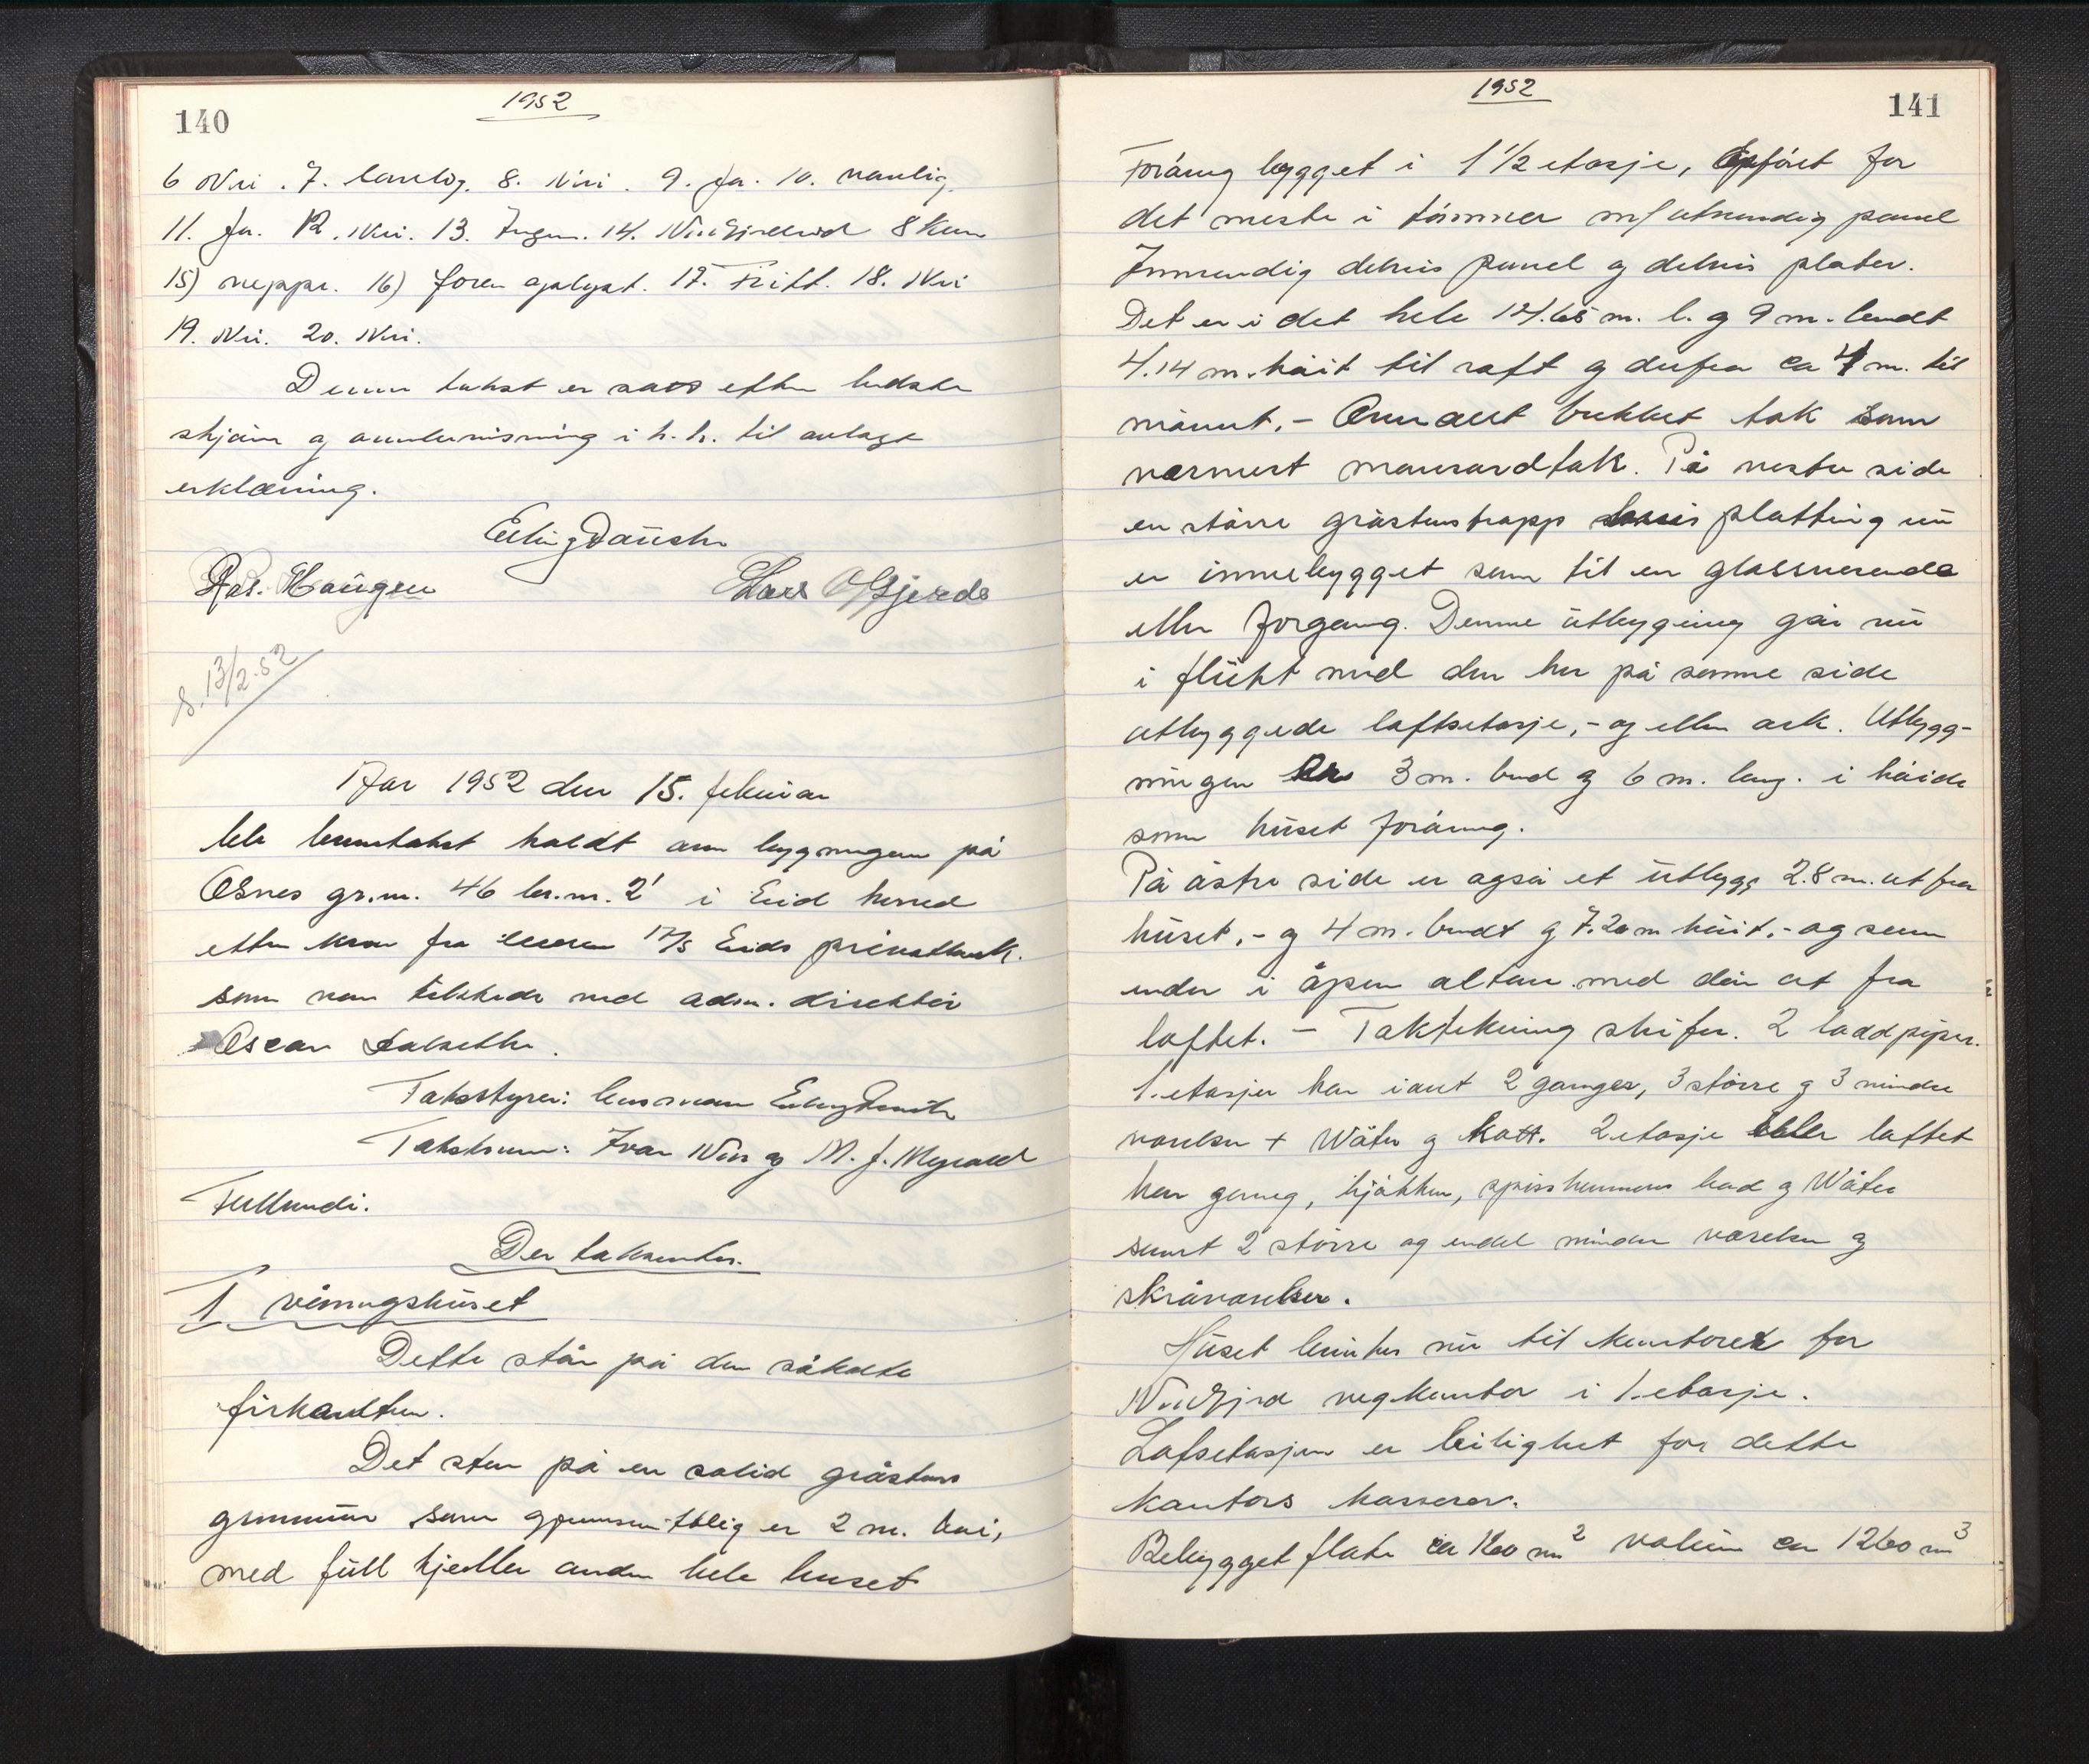 140
1952
6 Nei. 7. vanlig. 8. Nei. 9. Ja. 10. vanlig.
11. Ja. 12. Nei. 13. Ingen. 14. 8 km
15) neppe. 16) foran oplyst. 17. Fritt. 18. Nei
19. Nei. 20. Nei.
Denne takst er sats efter bedste
skjøn og overbevisning i h.h. til avlagt
erklæring.
Erling Dauste
Ras. Haugen Lars O Gjerde
S. 13/2-52
Aar 1952 den 15. februar
ble branntakst holdt over bygningen på
Osnes gr.nr. 46 br.nr. 2 i Eid herred
etter krav fra eieren A/S Eids privatbank.
som var tilstede ved adm. direktør
Oscar
Takstyrer: lensmann Erling Dauste
Takstmenn: Ivar Nes og M. J. Myrvold
Følbundi.
Der taksertes.
1 våningshuset
Dette står på den såkalte
firkanten.
Det står på en solid gråstens
grunnmur som gjennomsnittlig er 2 m. høi,
med full kjeller under hele huset
1952
141
Forøvrig bygget i 1 1/2 etasje, Opført for
det meste i tømmer m/ utvendig panel
Innvendig delvis panel og delvis plater.
Det er i det hele 14.65 m. l. og 9 m. bredt
4.14 m. høit til raft og derfra ca 4 m. til
mønnet. - Overalt brukket tak som
nærmest mansardtak. På vestre side
en større gråstenstrapp platting nu
er innebygget som til en glassveranda
eller forgang. Denne utbygging går nu
i flukt med den her på samme side
utbyggede loftsetasje, - og eller ark. Utbygg-
ningen er 3 m. bred og 6 m. lang. i høide
som huset forøvrig.
På østre side er også et utbygg 2.8 m. ut fra
huset, - og 4 m. bredt og 7.20 m høit, - og som
ender i åpen altan med dør ut fra
loftet. - Taktekning skifer. 2 laddpiper.
1. etasjer har ialt 2 ganger, 3 større og 3 mindre
værelser + Wåter og Kott. 2 etasje eller loftet
har gang, kjøkken, spiskammer bad og Wåter
samt 2 større og endel mindre værelser og
skråværelser.
Huset benyttes nu til kontorer for
Nordfjord vegkontor i 1. etasje.
Loftsetasjen er leilighet for dette
kontors kasserer.
Bebygget flate ca 160 m2 volum ca 1260 m3